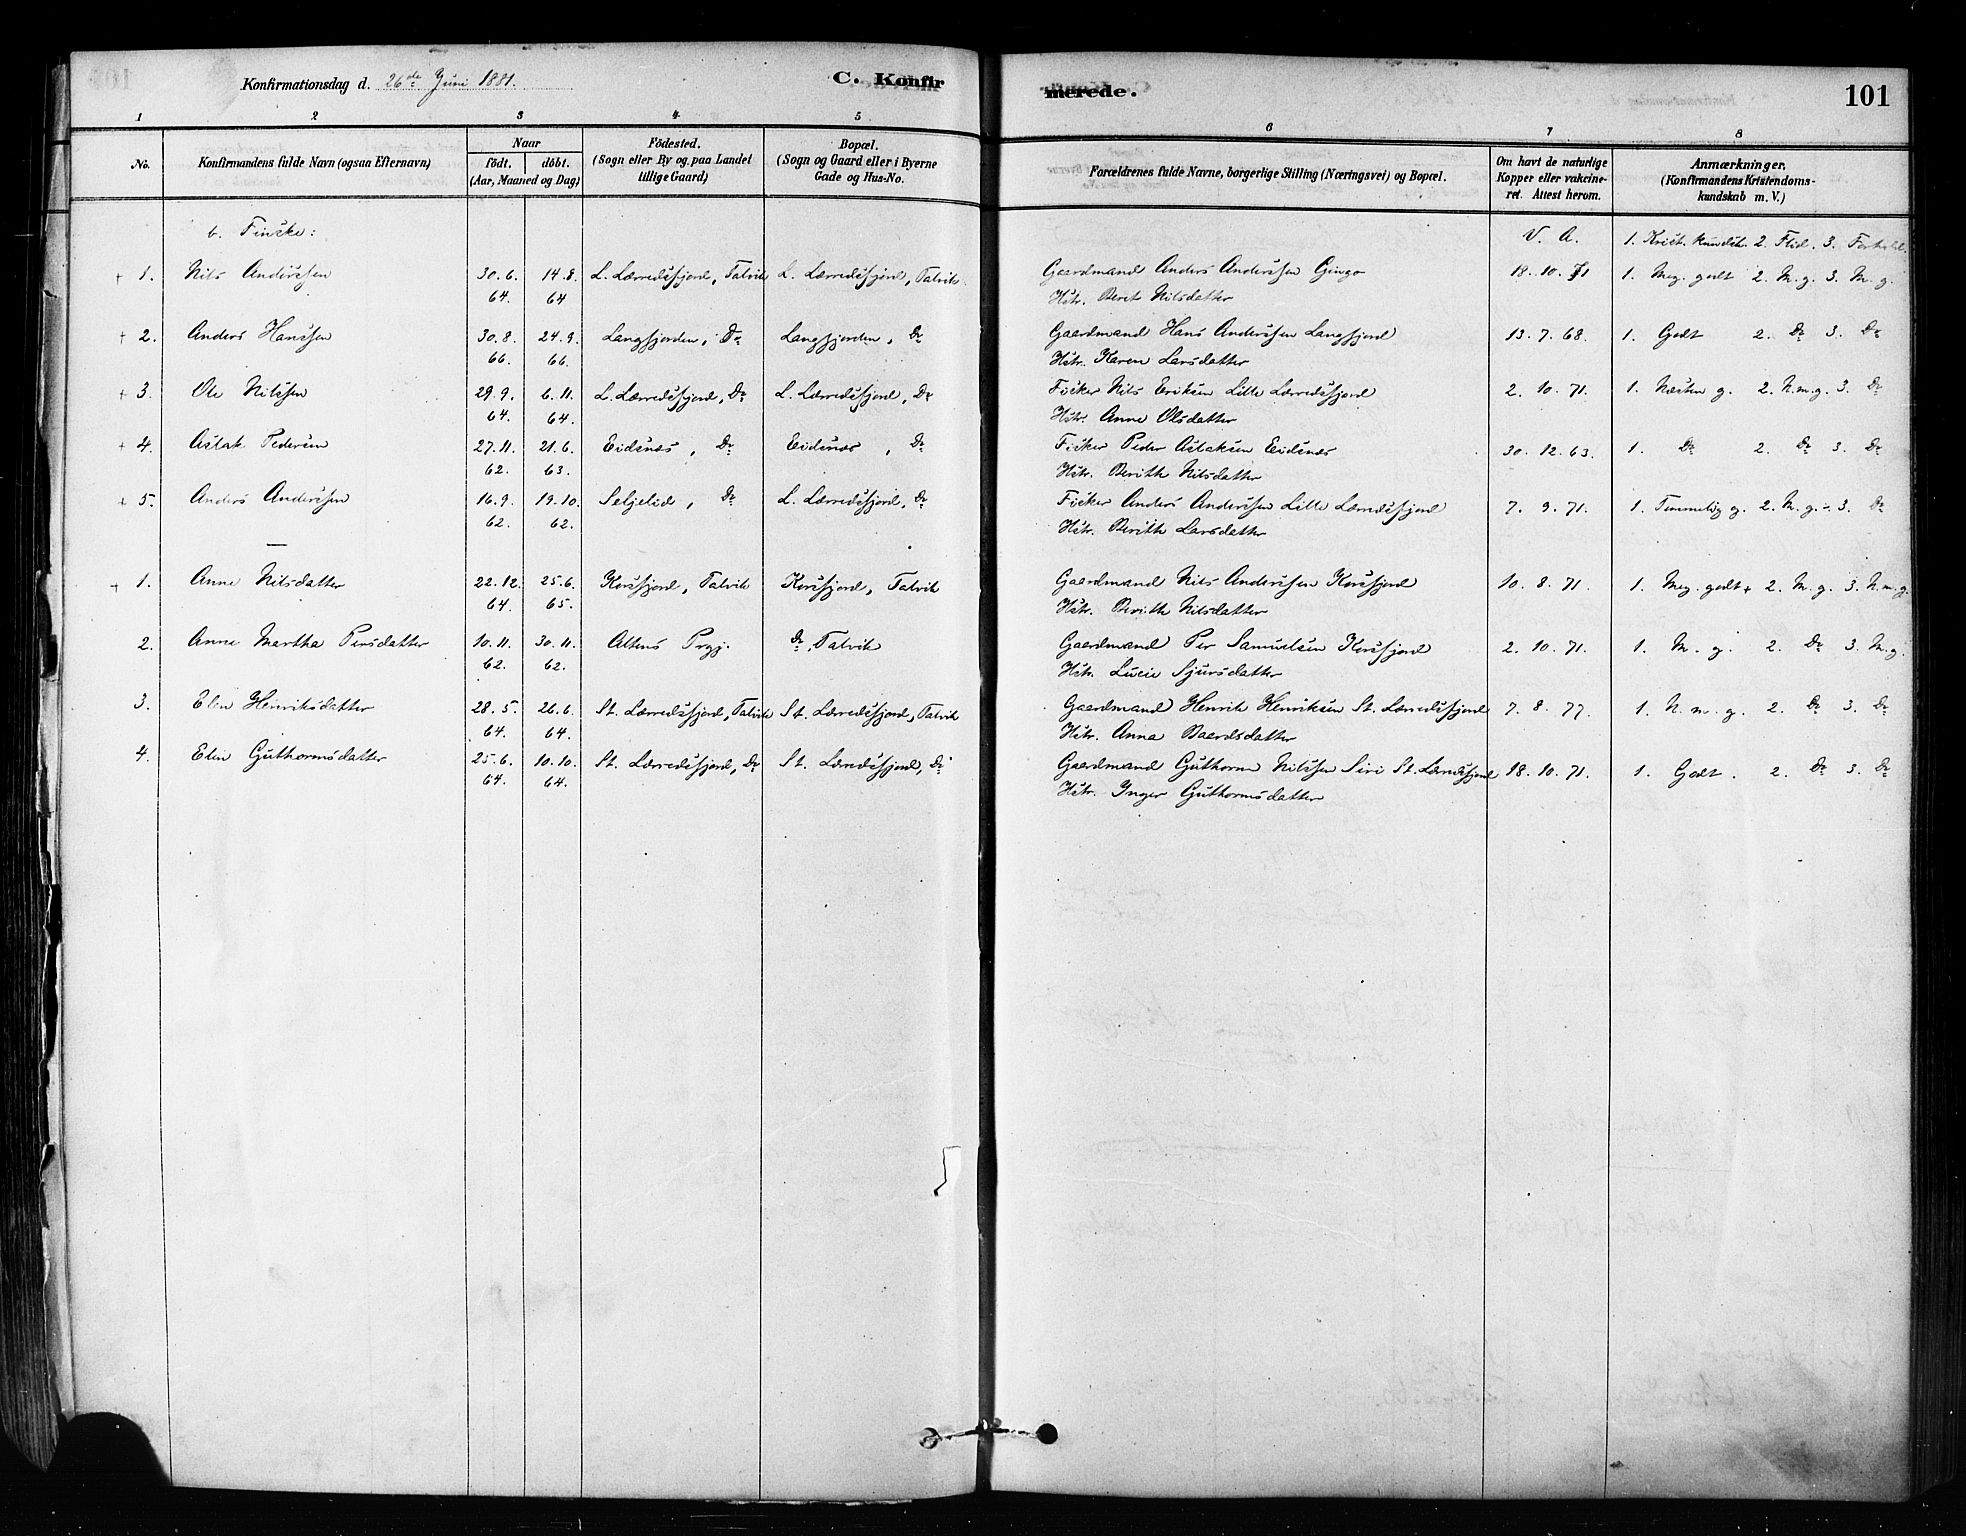 Konfirmationsdag d. 26de Juni 1881.
C. Konfir
merede.
101
1 2 3 4 5 6 7 8
No.
Konfirmandens fulde Navn (ogsaa Efternavn)
Naar
födt. döbt.
(Aar, Maaned og Dag)
Födested.
(Sogn eller By og paa Landet
tillige Gaard)
Bopæl.
(Sogn og Gaard eller i Byerne
Gade og Hus-No.
Forældrenes fulde Navne, borgerlige Stilling (Næringsvei) og Bopæl.
Om havt de naturlige
Kopper eller vakcine-
ret. Attest herom.
Anmærkninger,
(Konfirmandens Kristendoms-
kundskab m. V.)
b. Finske: V. A. 1. Krist. kundsk. 2. Flid. 3. Forhold.
+ 1. Nils Anderssen 30.6. 14.8. L. Lærredsfjord, Talvik L. Lærredsfjord, Talvik. Gaardmand Anders Anderssen Gingo 18. 10. 71 1. Meg. godt 2. M. g. 3. M. g.
64. 64 Hstr. Beret Nilsdatter
+ 2. Anders Hanssen 30.8. 24.9. Langfjorden, Do Langfjorden, Do Gaardmand Hans Anderssen Langfjord 13. 7. 68. 1. Godt 2. Do 3. Do
66. 66. Hstr. Karen Larsdatter
+ 3. Ole Nilssen 29.9. 6.11. L. Lærredsfjord, Do L. Lærredsfjord, Do Fisker Nils Eriksen Lille Lærredsfjord 2. 10. 71. 1. Næsten g. 2. N.m.g. 3. Do
64. 64. Hstr. Anne Olsdatter
+ 4. Aslak Pedersen 27.11. 21.6. Eidsnæs, Do Eidsnæs, Do Fisker Peder Aslaksen Eidsnæs 30. 12. 63. 1. Do 2. Do 3. Do
62. 63. Hstr. Berith Nilsdatter
+ 5. Anders Anderssen 16.9. 19.10. Seljelid, Do L. Lærredsfjord, Do Fisker Anders Anderssen Lille Lærredsfjord 7. 9. 71. 1. Temmelig g. 2. M. g. - 3. Do
62. 62. Hstr. Berith Larsdatter
+ 1. Anne Nilsdatter 22.12. 25.6. Korsfjord, Talvik Korsfjord, Talvik Gaardmand Nils Anderssen Korsfjord 10. 8. 71. 1. Meg. godt + 2. M. g. 3. N. m. g.
64. 65. Hstr. Berith Nilsdatter
2. Anne Martha Persdatter 10.11. 30.11. Altens Prgj. Do, Talvik Gaardmand Per Samuelsen Korsfjord 2. 10. 71. 1. M. g. 2. Do 3. M. g.
62. 62. Hstr. Lucie Sjursdatter
3. Elen Henriksdatter 28.5. 26.6. St. Lærredsfjord, Talvik St. Lærredsfjord, Talvik Gaardmand Henrik Henriksen St. Lærredsfjord 7. 8. 77. 1. N. m. g. 2. Do 3. Do
64. 64. Hstr. Anna Baardsdatter
4. Elen Guthormsdatter 25.6. 10.10. St. Lærredsfjord, Do St. Lærredsfjord, Do Gaardmand Guthorm Nilssen Siri St. Lærredsfjord 18. 10. 71. 1. Godt. 2. Do 3. Do
64. 64. Hstr. Inger Guthormsdatter